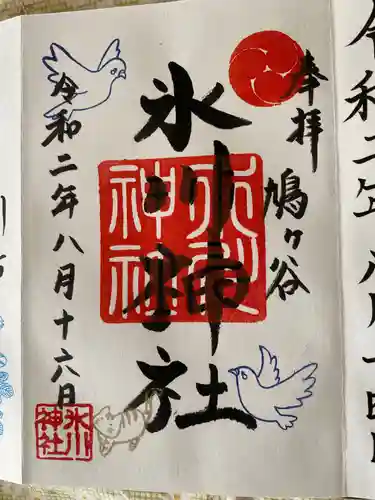 奉拝
鳩ヶ谷
氷川神社
氷川神社
令和二年八月十六日
氷川神社
令和二年八月